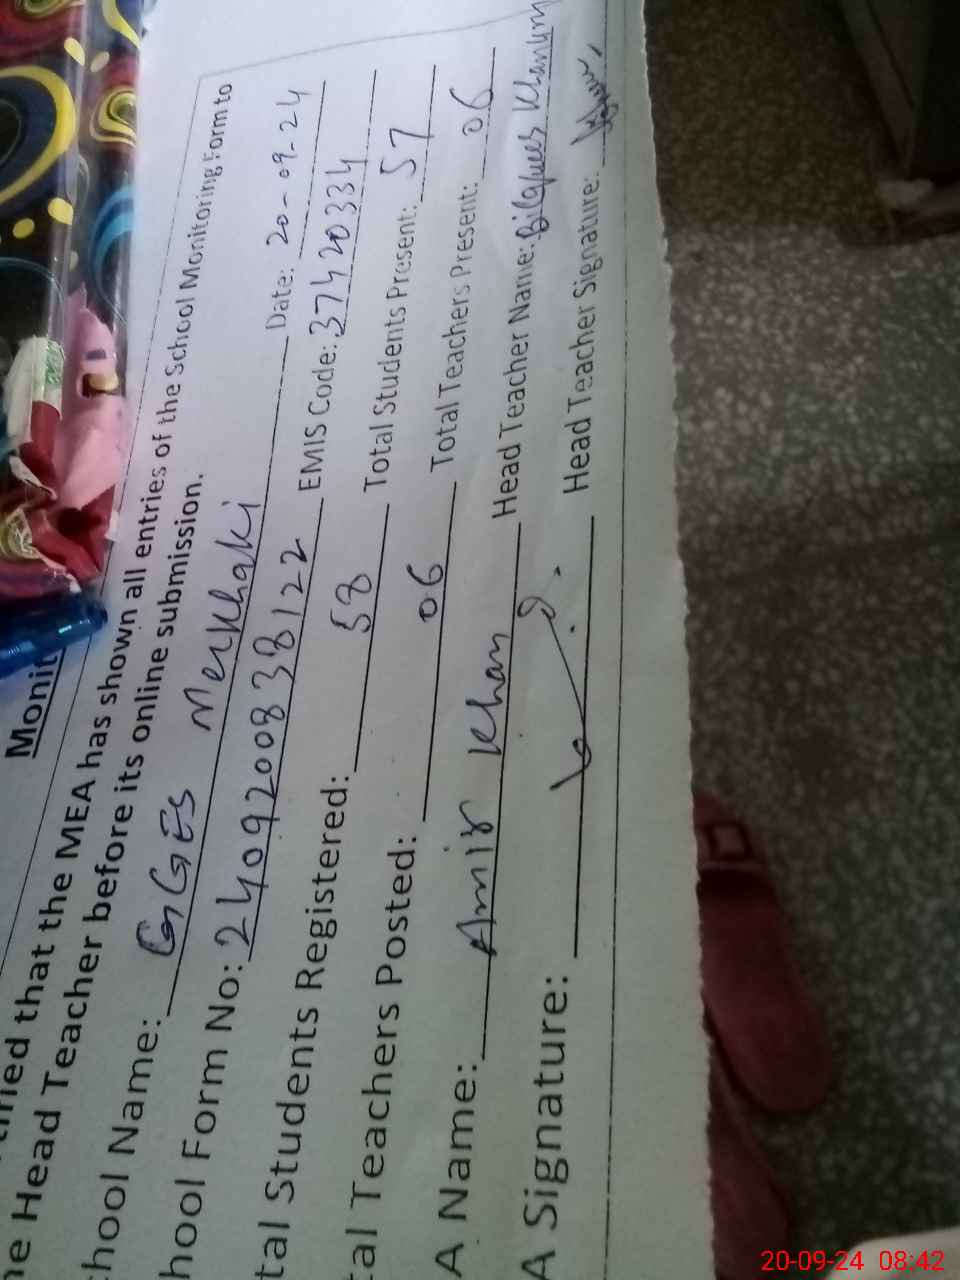 Monit
ified that the MEA has shown all entries of the School Monitoring Form to
he Head Teacher before its online submission.
chool Name: GGES Merkhaki Date: 20-09-24
hool Form No: 24092008338122 EMIS Code: 37420334
tal Students Registered: 58 Total Students Present: 57
tal Teachers Posted: 06 Total Teachers Present: 06
A Name: Amir Khan Head Teacher Name: Bilqees Khanum
A Signature: Head Teacher Signature:
20-09-24 08:42